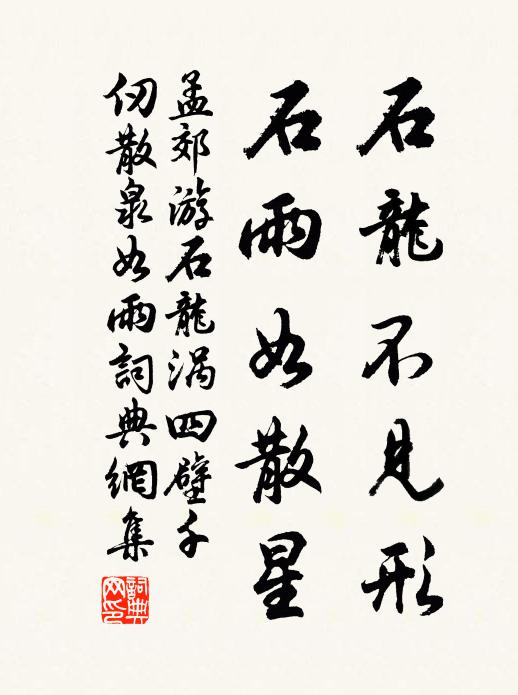 石龍不見形
石雨如散星
孟郊游石龍渦四壁千
仞散泉如雨詞典網集
詞典网印